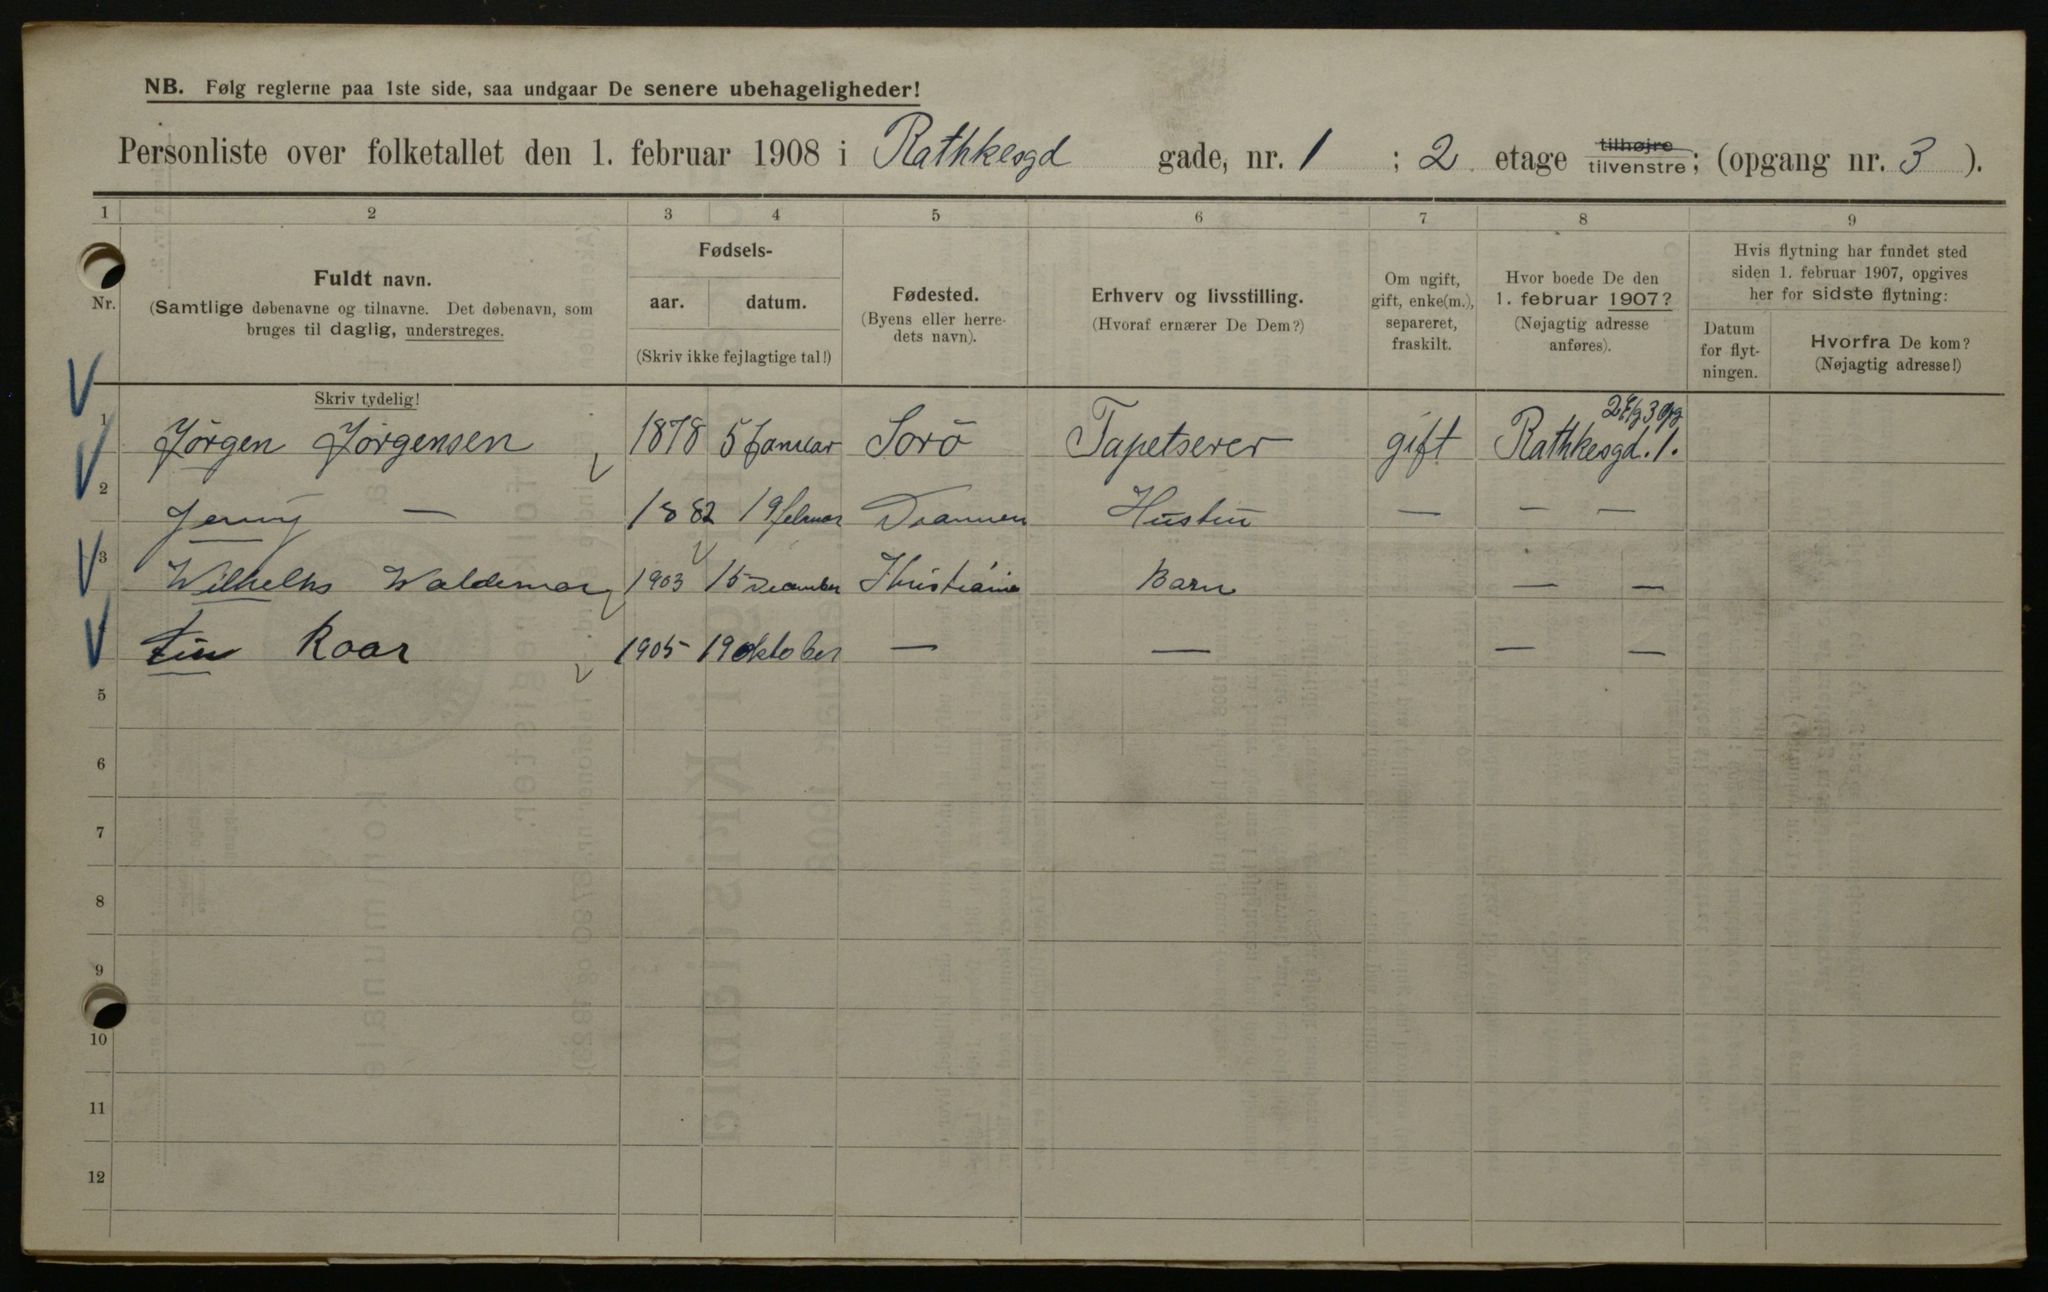 NB. Følg reglerne paa 1ste side, saa undgaar De senere ubehageligheder!
Personliste over folketallet den 1. februar 1908 i Rathkesgd gade, nr. 1 ; 2 etage tilhøjre tilvenstre; (opgang nr. 3 ).
1 2 3 4 5 6 7 8 9
Nr.
Fuldt navn.
(Samtlige døbenavne og tilnavne. Det døbenavn, som
bruges til daglig, understreges.
Skriv tydelig!
Fødsels-
aar. datum.
(Skriv ikke fejlagtige tal!)
Fødested.
(Byens eller herre-
dets navn).
Erhverv og livsstilling.
(Hvoraf ernærer De Dem?)
Om ugift,
gift, enke(m.),
separeret,
fraskilt.
Hvor boede De den
1. februar 1907?
(Nøjagtig adresse
anføres).
Hvis flytning har fundet sted
siden 1. februar 1907, opgives
her for sidste flytning:
Datum
for flyt-
ningen.
Hvorfra De kom?
(Nøjagtig adresse!)
1 Jörgen Jörgensen 1878 5 Januar Sorö Tapetserer gift Rathkesgd. 1. 2 Etg 3 Opg
2 Jenny — 1882 19 februar Drammen Hustru — — — —
3 Wilhelm Waldemar 1903 15 December Kristiania Barn — —
Finn Roar 1905 19 oktober — — — —
5
6
7
8
9
10
11
12